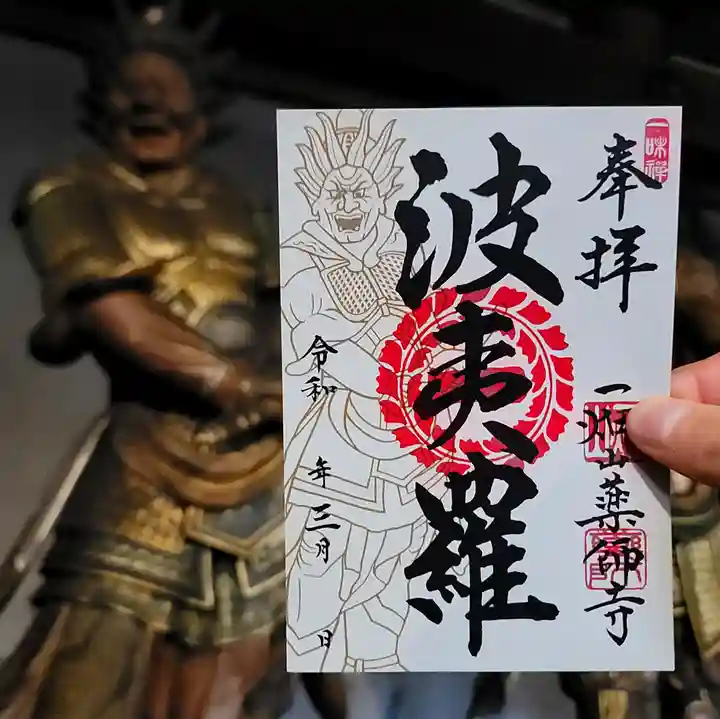 一味禅
奉拝
一畑山薬師寺
波夷羅
令和 年 三月 日